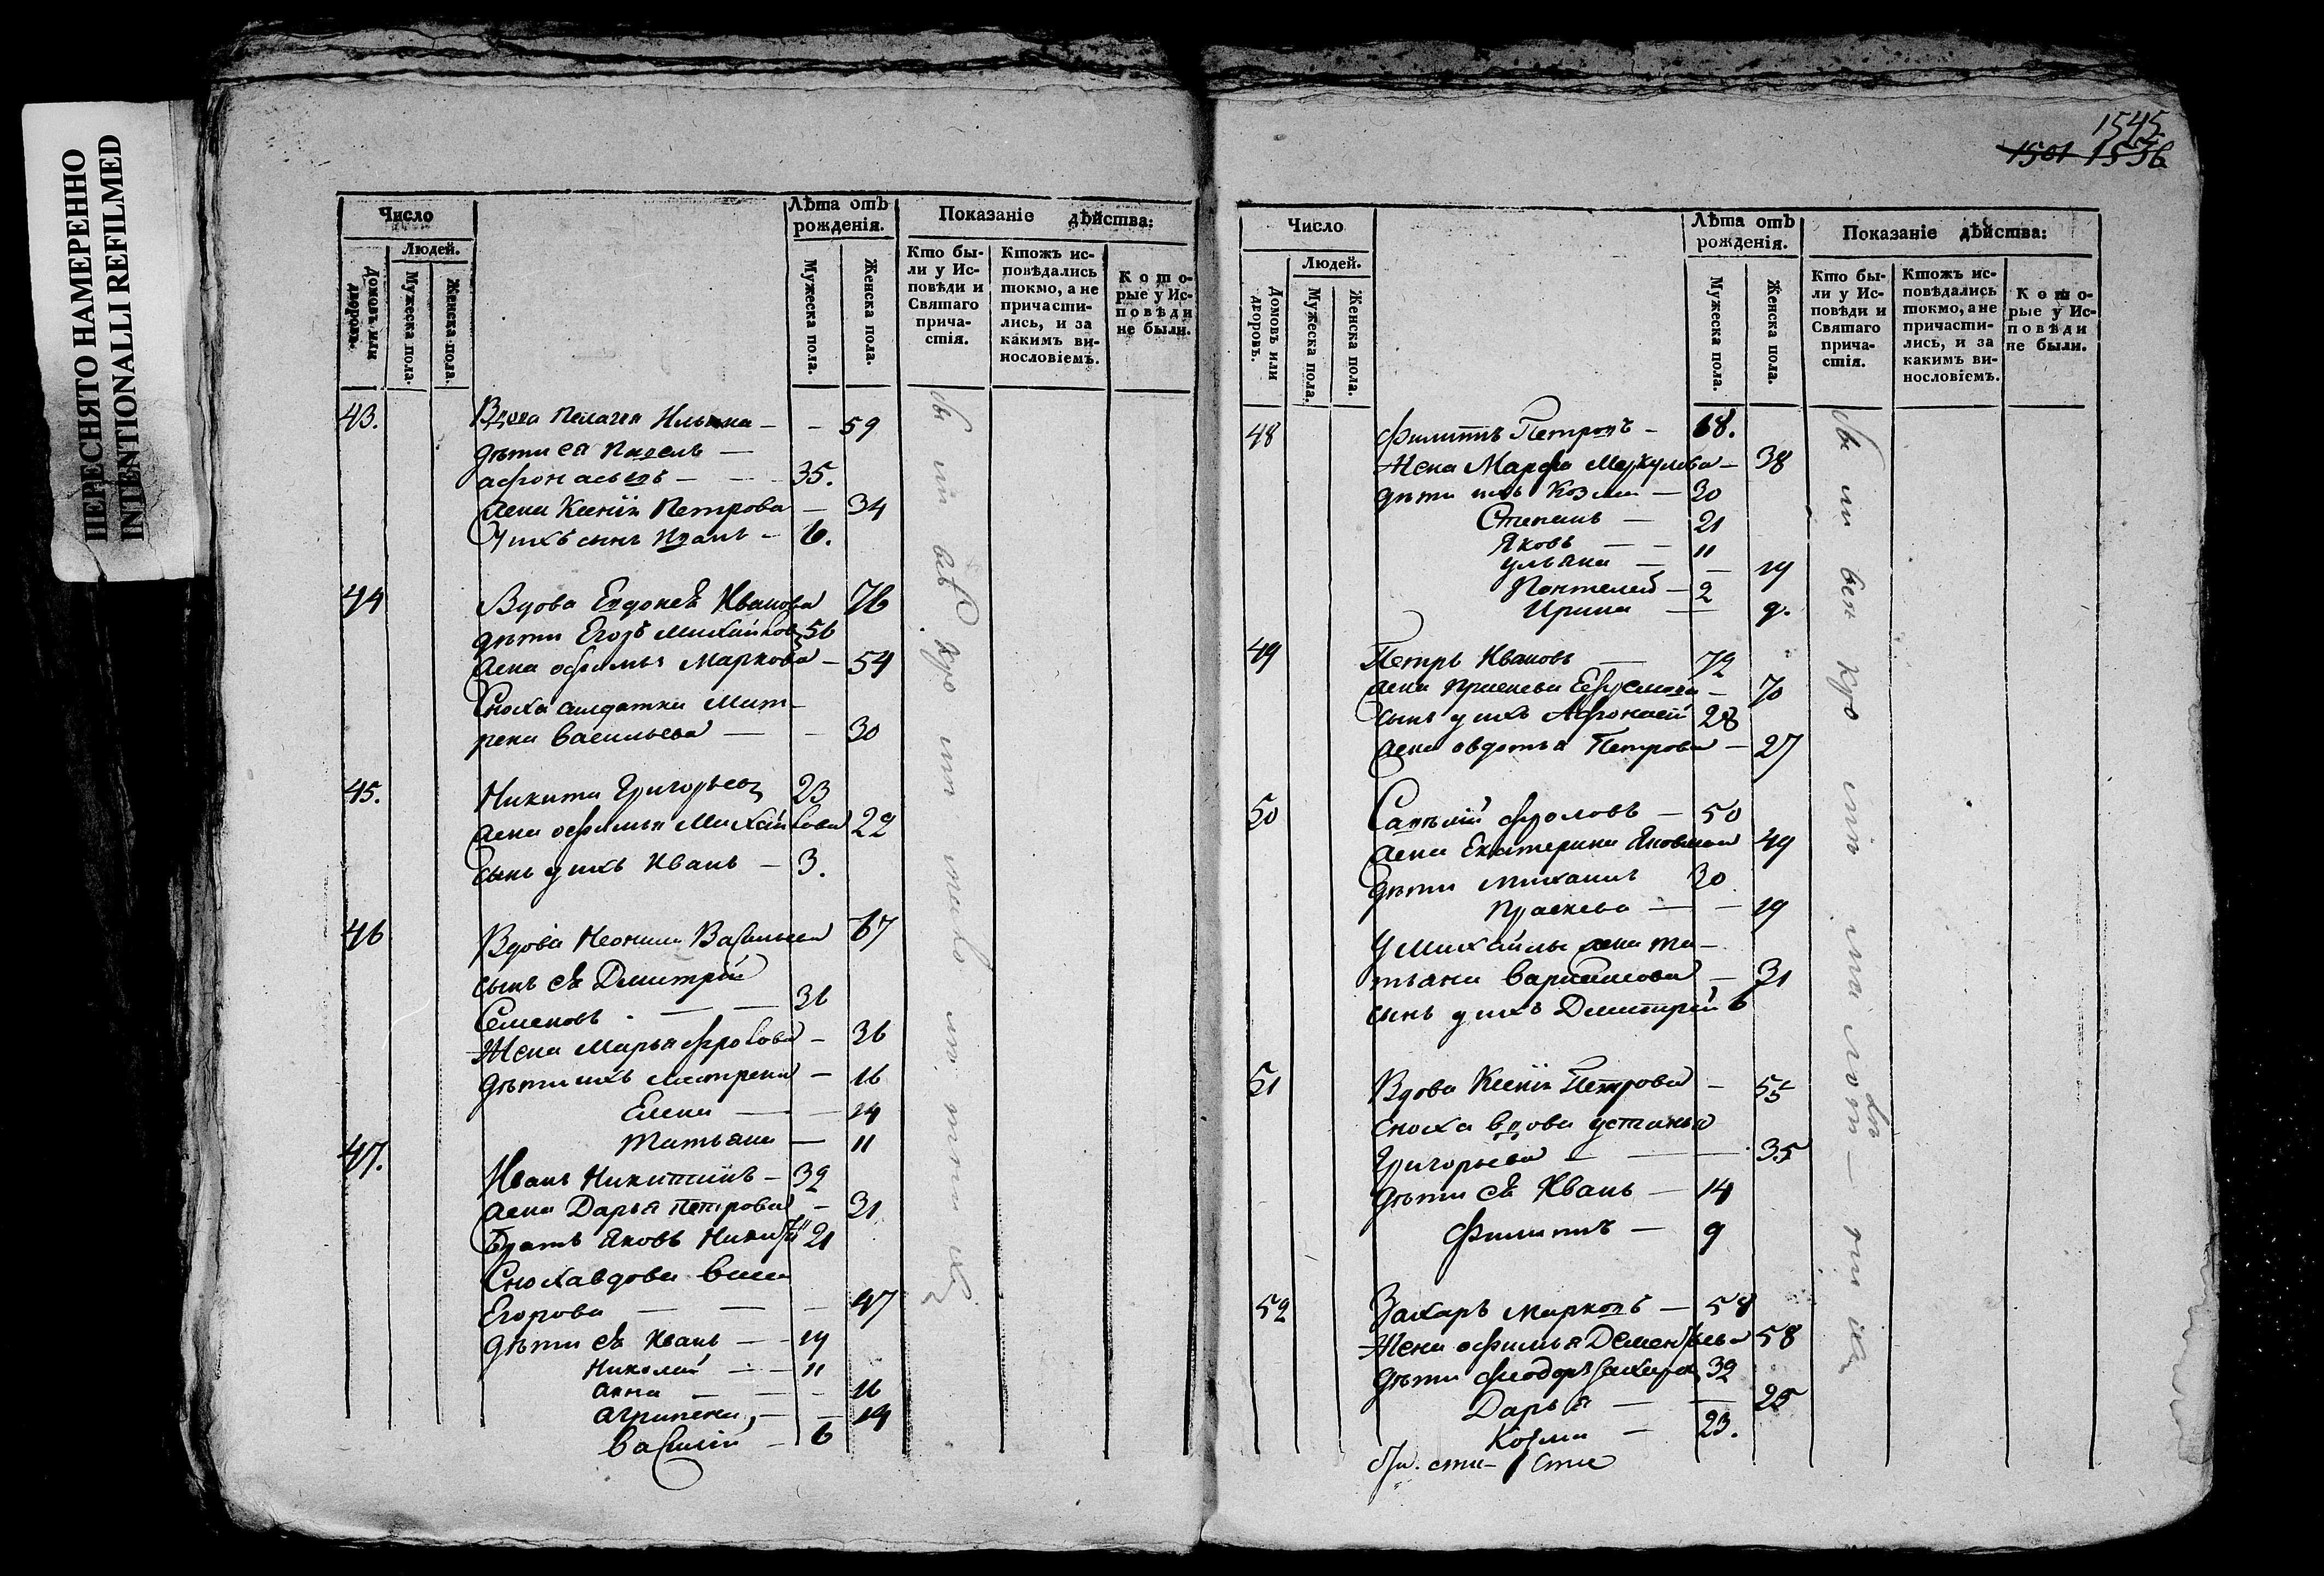 ПЕРЕСНЯТО НАМЕРЕННО
INTENTIONALLI REFILMED
Число
Людей.
Домовъ или дворовъ.
Мужеска пола.
Женска пола.
Лѣта отъ рожденія.
Мужеска пола.
Женска пола.
Показаніе дѣйства:
Кто бы-
ли у Ис-
повѣди и
Святаго
прича-
стія.
Ктожъ ис-
повѣдались
токмо, а не
причасти-
лись, и за
какимъ ви-
нословіемъ.
Кото-
рые у Ис-
повѣди
не были.
43. Вдова Пелагея Ильина - - 59
дѣти ея Павелъ -
афонасьевъ - - 35.
жена Ксенія Петрова - 34
У ихъ сынъ Иванъ - 6.
44 Вдова Евдокея Иванова 76
дѣти Егоръ Михайловъ 56
жена офимья Маркова - 54
Сноха салдатка Мат-
рена Васильева - - 30
45. Никита Григорьевъ 23
жена офимья Михайлова 22
сынъ у ихъ Иванъ - 3.
46 Вдова Неонила Васильева 67
сынъ ея Дмитрій
Семеновъ - - 36
Жена Марья Фролова - 36
дѣти ихъ матрена - 16
Елена - - 14
Татьяна - 11
47. Иванъ Никитинъ - 32
жена Дарья Петрова - 31
Братъ Яковъ Никитинъ 21
Сноха вдова Васса
Егорова - - - 47
дѣти ея Иванъ - - 14
Николай - - 11
анна - - - 16
агрипена, - - 14
Василій - 6
1545
1501 1536
Число
Людей.
Домовъ или дворовъ.
Мужеска пола.
Женска пола.
Лѣта отъ рожденія.
Мужеска пола.
Женска пола.
Показаніе дѣйства:
Кто бы-
ли у Ис-
повѣди и
Святаго
прича-
стія.
Ктожъ ис-
повѣдались
токмо, а не
причасти-
лись, и за
какимъ ви-
нословіемъ.
Кото-
рые у Ис-
повѣди
не были.
48 Филиппъ Петровъ - 68.
Жена Марфа Меркулова - 38
дѣти ихъ Козма - 30
Степанъ - 21
Яковъ - - 11
ульяна - - 14
Пантелей - 2
Ирина - 9.
49 Петръ Ивановъ - 72
жена Прасковья Ефремова - 70
сынъ у ихъ Афонасей 28
жена овдотья Петрова - 27
50 Савелій Фроловъ - 50
жена Екатерина Яковлева 49
дѣти михаилъ 30
Прасковья - - 19
У Михайлы жена Та-
тьяна Варламова - 31
сынъ у ихъ Дмитрей 6
51 Вдова Ксенія Петрова - 55
сноха вдова устинья
Григорьева - - 35
дѣти ея Иванъ - 14
Филиппъ - 9
52 Захаръ Марковъ - 58
Жена офимья Дементьева 58
дѣти Феодоръ Захаровъ 32
Дарья - - 25
Козма - 23.